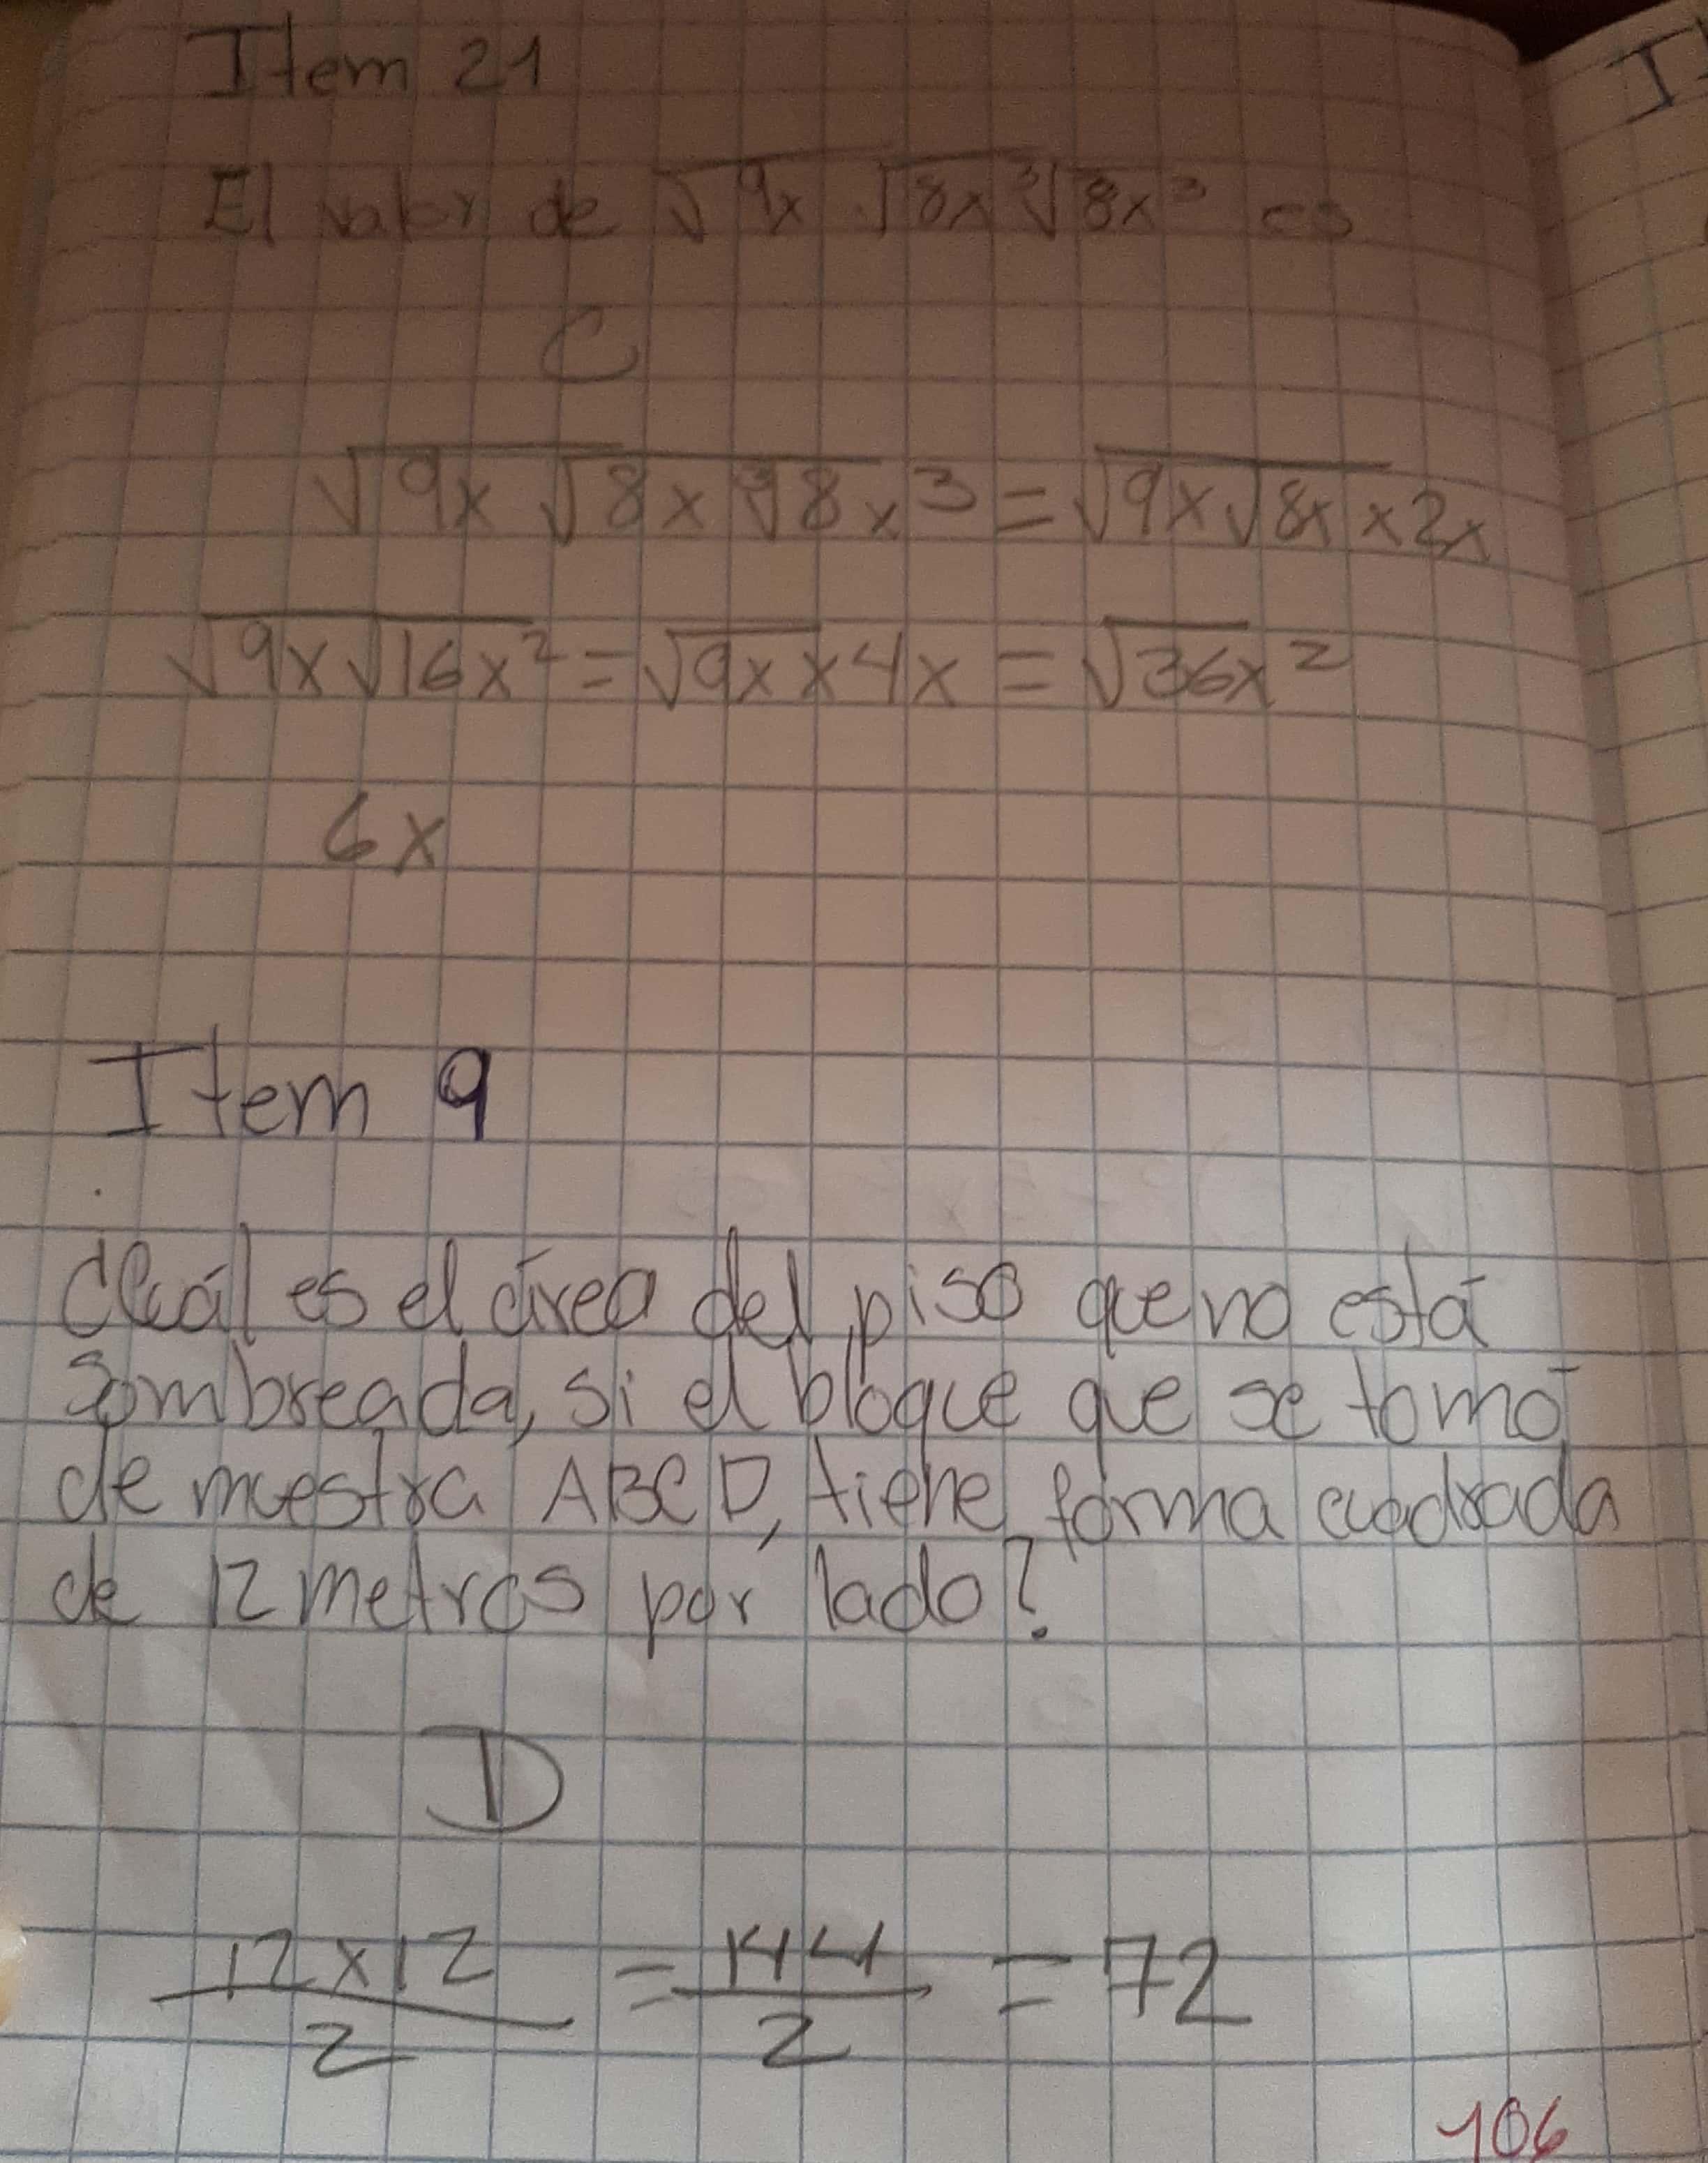 Item 21
El valor de √9x √8x ∛8x³ es
C
√9x √8x ∛8x³ = √9x√8x x 2x
√9x√16x² = √9x x 4x = √36x²
6x
Item 9
¿Cuál es el área del piso que no está
sombreada, si el bloque que se tomó
de muestra ABCD, tiene forma cuadrada
de 12 metros por lado?
D
12x12/2 = 144/2 = 72
106